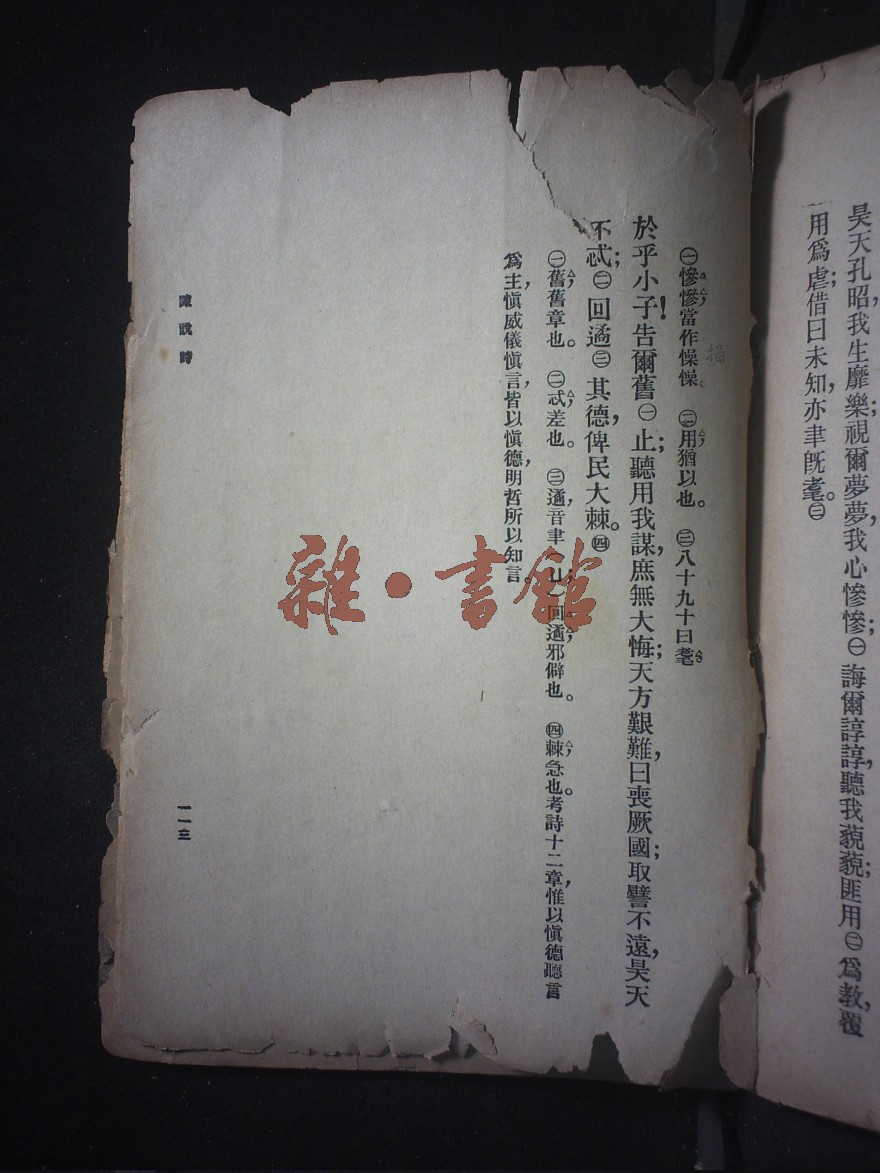 昊天孔昭，我生靡樂；視爾夢夢，我心慘慘；㊀誨爾諄諄，聽我藐藐；匪用㊁爲教，覆
用爲虐；借曰未知，亦聿既耄。㊂
㊀慘慘；當作懆懆。㊁用；猶以也。㊂八十九十曰耄
於乎小子！告爾舊㊀止；聽用我謀，庶無大悔；天方艱難，曰喪厥國；取譬不遠，昊天
不忒；㊁回遹㊂其德，俾民大棘。㊃
㊀舊；舊章也。㊁忒；差也。㊂遹，音聿，回遹；邪僻也。㊃棘；急也。考詩十二章，惟以愼德聽言
爲主，愼威儀，愼言，皆以愼德，明哲所以知言。
陳戕時
一一三
雜·書館